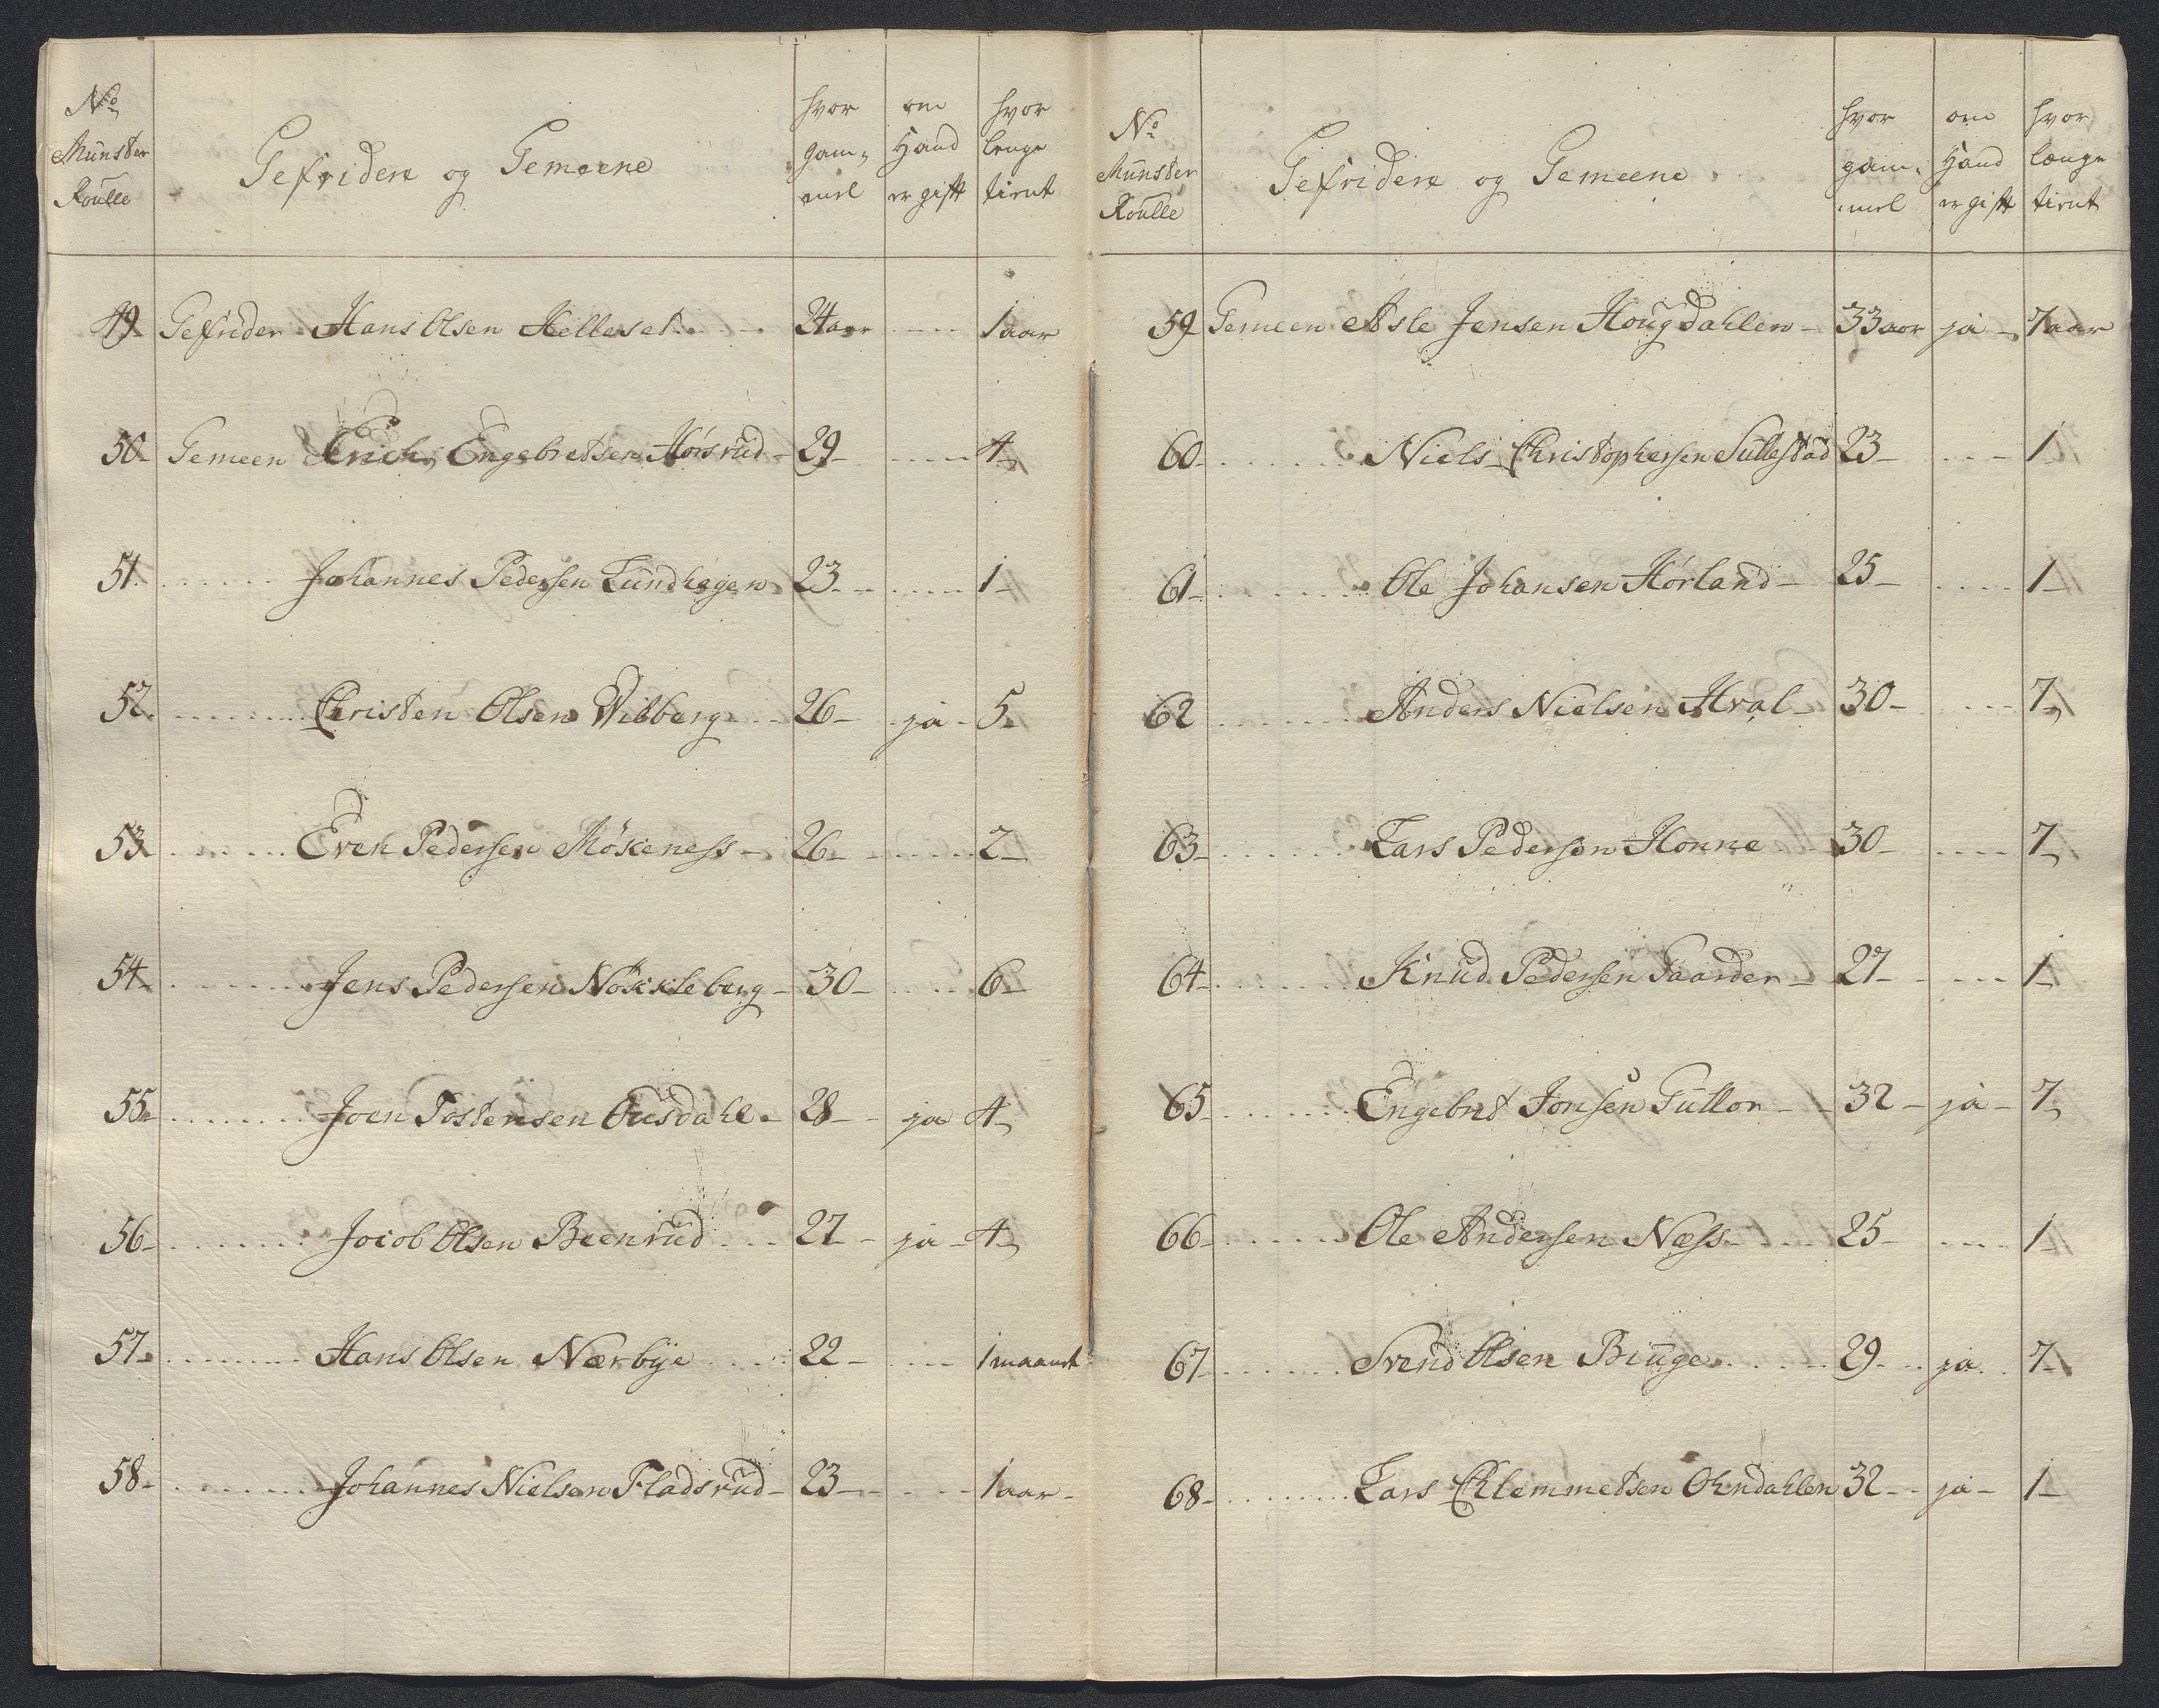 No Munster Roulle | Gefridere og Gemeene | hvor gam: mel | om Hand er gift | hvor lenge tient
49 Gefrider Hans Olsen Helleset 24 aar 1 aar
50 Gemeen Erich Engebretsen Hörsrud 29 4
51 Johannes Pedersen Lundhagen 23 1
52 Christen Olsen Wibberg 26 ja 5
53 Even Pedersen Mökeness 26 2
54 Jens Pedersen Nökkleberg 30 6
55 Joen Tostensen Ousdahl 28 ja 4
56 Jocob Olsen Beenrud 27 ja 4
57 Hans Olsen Nærbye 22 1 maanet
58 Johannes Nielsen Fladsrud 23 1 aar
No Munster Roulle | Gefridere og Gemeene | hvor gam: mel | om Hand er gift | hvor længe tient
59 Gemeen Asle Jensen Hougdahlen 33 aar ja 7 aar
60 Niels Christophersen Sullestad 23 1
61 Ole Johansen Hörland 25 1
62 Anders Nielsen Hval 30 7
63 Lars Pedersen Honne 30 7
64 Knud Pedersen Gaarder 27 1
65 Engebret Jonsen Guttor 32 ja 7
66 Ole Andersen Næss 25 1
67 Svend Olsen Biuge 29 ja 7
68 Lars Chlemmetsen Ohndahlen 32 ja 1